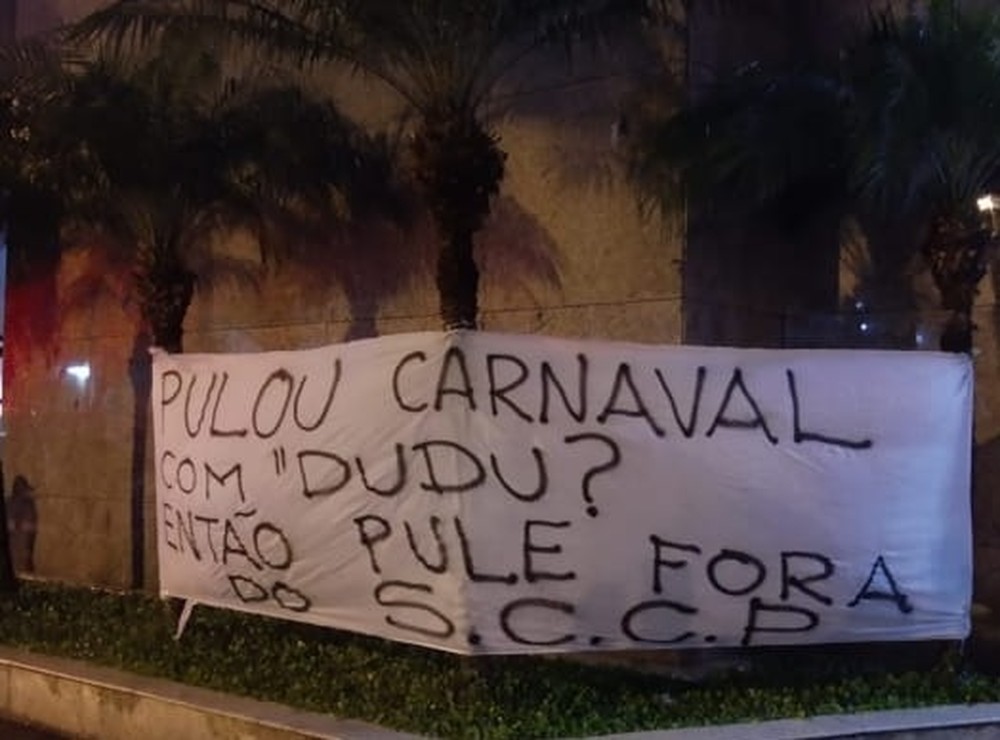 PULOU CARNAVAL
COM "DUDU?
ENTÃO PULE FORA
DO S.C.C.P